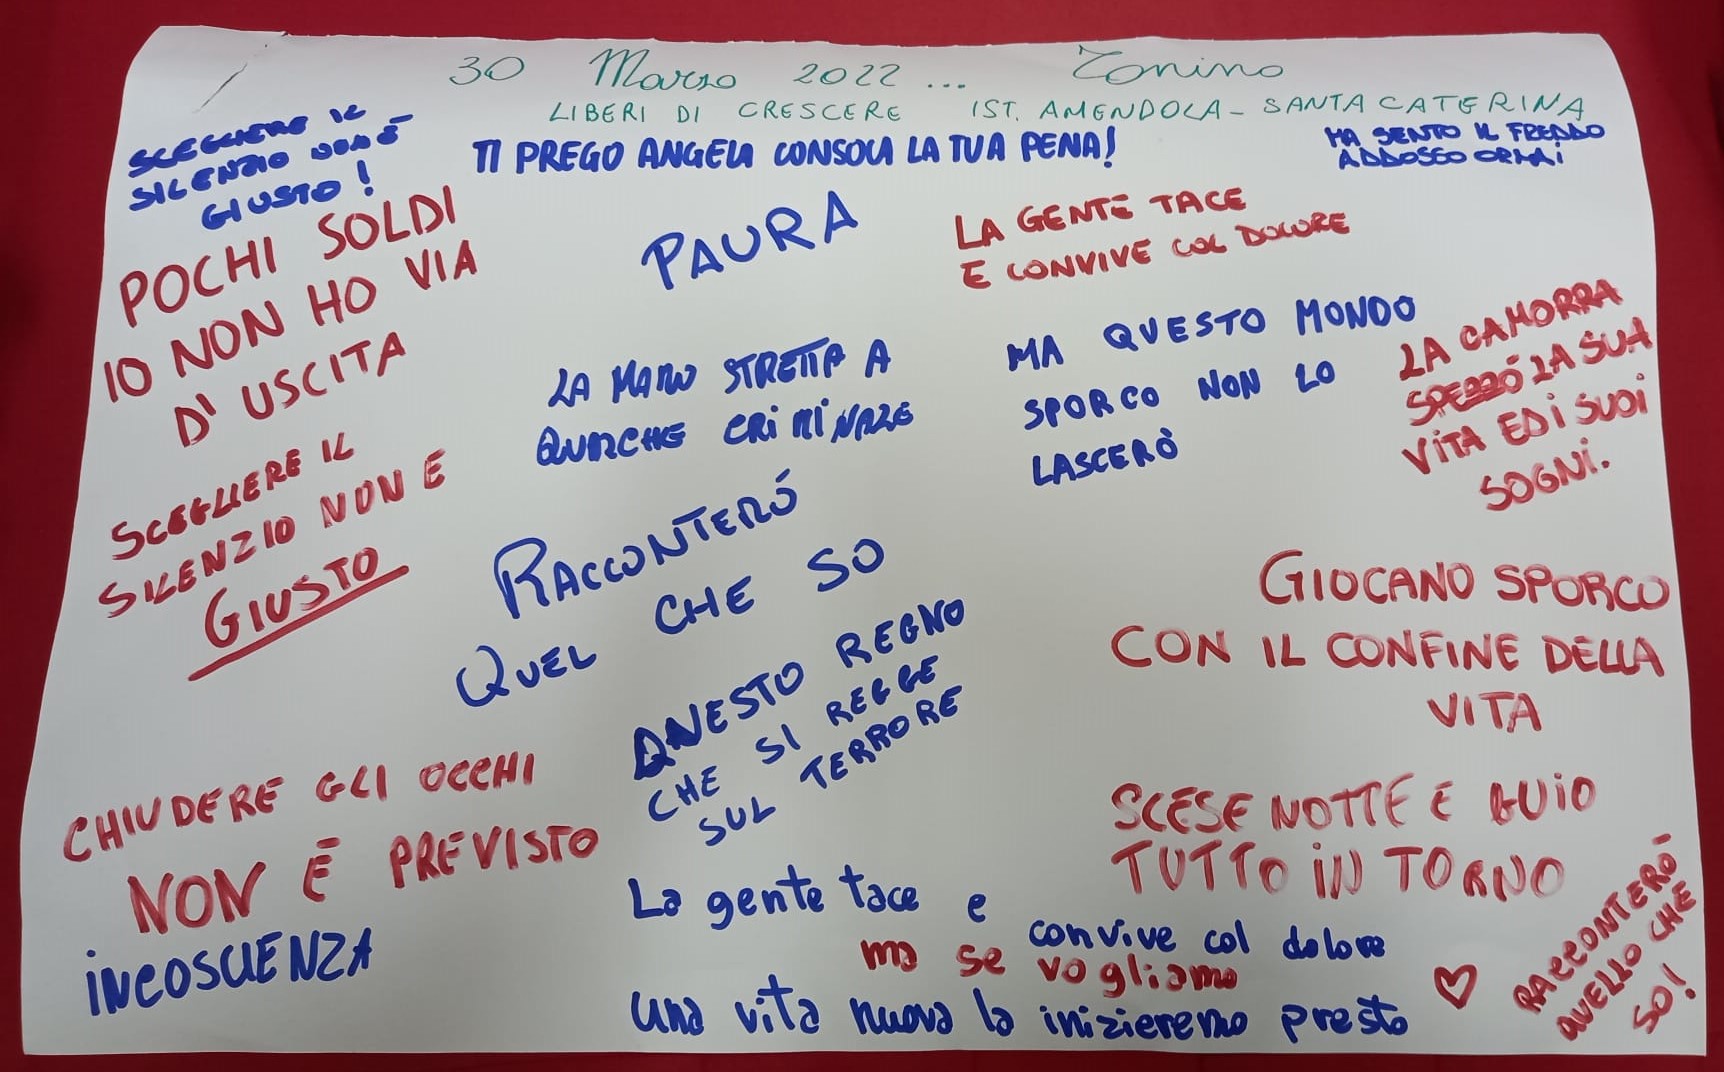 30 Marzo 2022 ... Tonino
LIBERI DI CRESCERE IST. AMENDOLA - SANTA CATERINA
SCEGLIERE IL
SILENZIO NON È
GIUSTO!
TI PREGO ANGELA CONSOLA LA TUA PENA!
MA SENTO IL FREDDO
ADDOSSO ORMAI
POCHI SOLDI
IO NON HO VIA
D'USCITA
PAURA
LA GENTE TACE
E CONVIVE COL DOLORE
LA MANO STRETTA A
QUALCHE CRIMINALE
MA QUESTO MONDO
SPORCO NON LO
LASCERÒ
LA CAMORRA
SPEZZÒ LA SUA
VITA ED I SUOI
SOGNI.
SCEGLIERE IL
SILENZIO NON E
GIUSTO
RACCONTERÓ
QUEL CHE SO
GIOCANO SPORCO
CON IL CONFINE DELLA
VITA
QUESTO REGNO
CHE SI REGGE
SUL TERRORE
CHIUDERE GLI OCCHI
NON È PREVISTO
INCOSCIENZA
SCESE NOTTE E BUIO
TUTTO IN TORNO
La gente tace e convive col dolore
ma se vogliamo
una vita nuova la inizieremo presto
RACCONTERÒ
QUELLO CHE
SO!